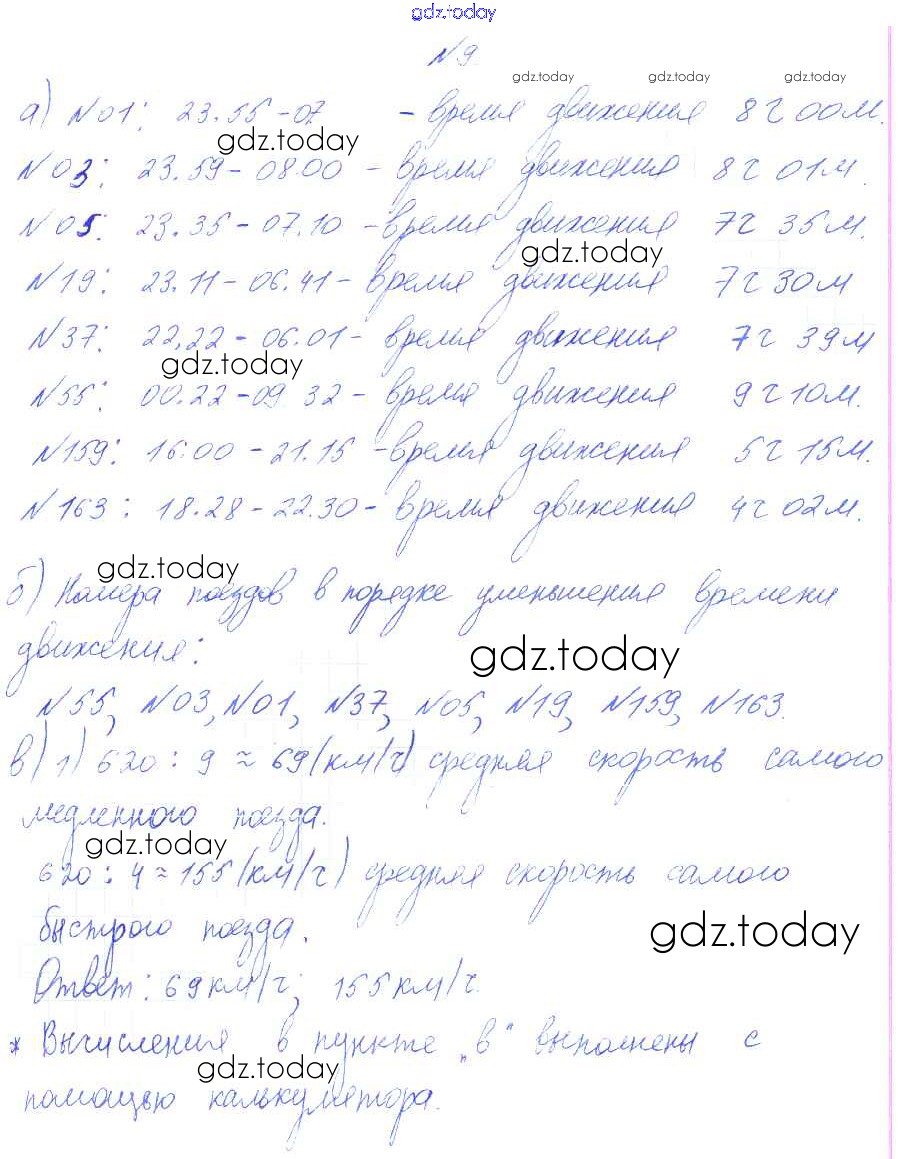 gdz.today
№9.
gdz.today gdz.today gdz.today
а) №01: 23.55-07 - время движения 8ч 00м.
gdz.today
№03: 23.59-08.00 - время движения 8ч 01м.
№05: 23.35-07.10 - время движения 7ч 35м.
gdz.today
№19: 23.11-06.41- время движения 7ч 30м
№37: 22,22-06.01- время движения 7ч 39м
gdz.today
№55: 00.22-09 32 - время движения 9ч 10м.
№159: 16:00-21.15 -время движения 5ч 15м.
№163: 18.28-22.30- время движения 4ч 02м.
gdz.today
б) Номера поездов в порядке уменьшения времени
движения:
gdz.today
№55, №03, №01, №37, №05, №19, №159, №163.
в) 1) 620 : 9 ≈ 69 (км/ч) средняя скорость самого
медленного поезда.
gdz.today
620 : 4 ≈ 155 (км/ч) средняя скорость самого
быстрого поезда.
gdz.today
Ответ: 69км/ч; 155км/ч.
* Вычисления в пункте „в“ выполнены с
gdz.today
помощью калькулятора.